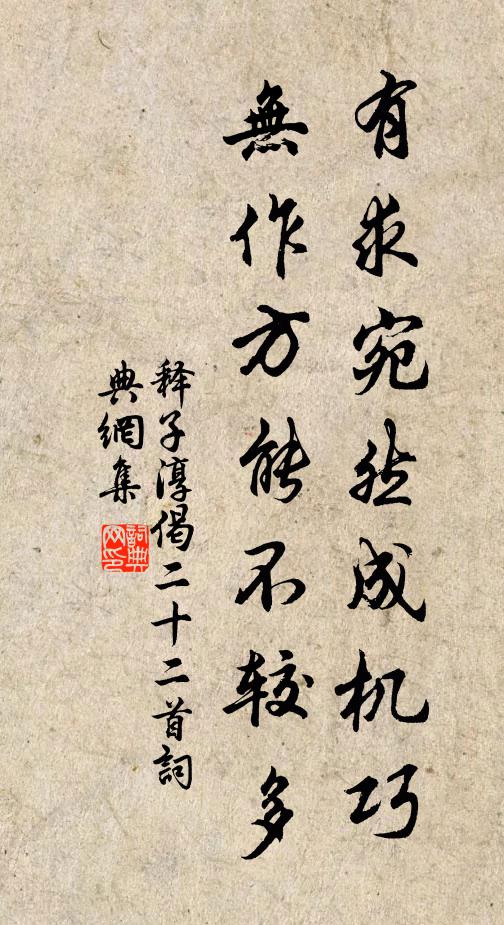 有求宛然成机巧
無作方能不较多
释子淳偈二十二首詞
典網集
詞典
网印